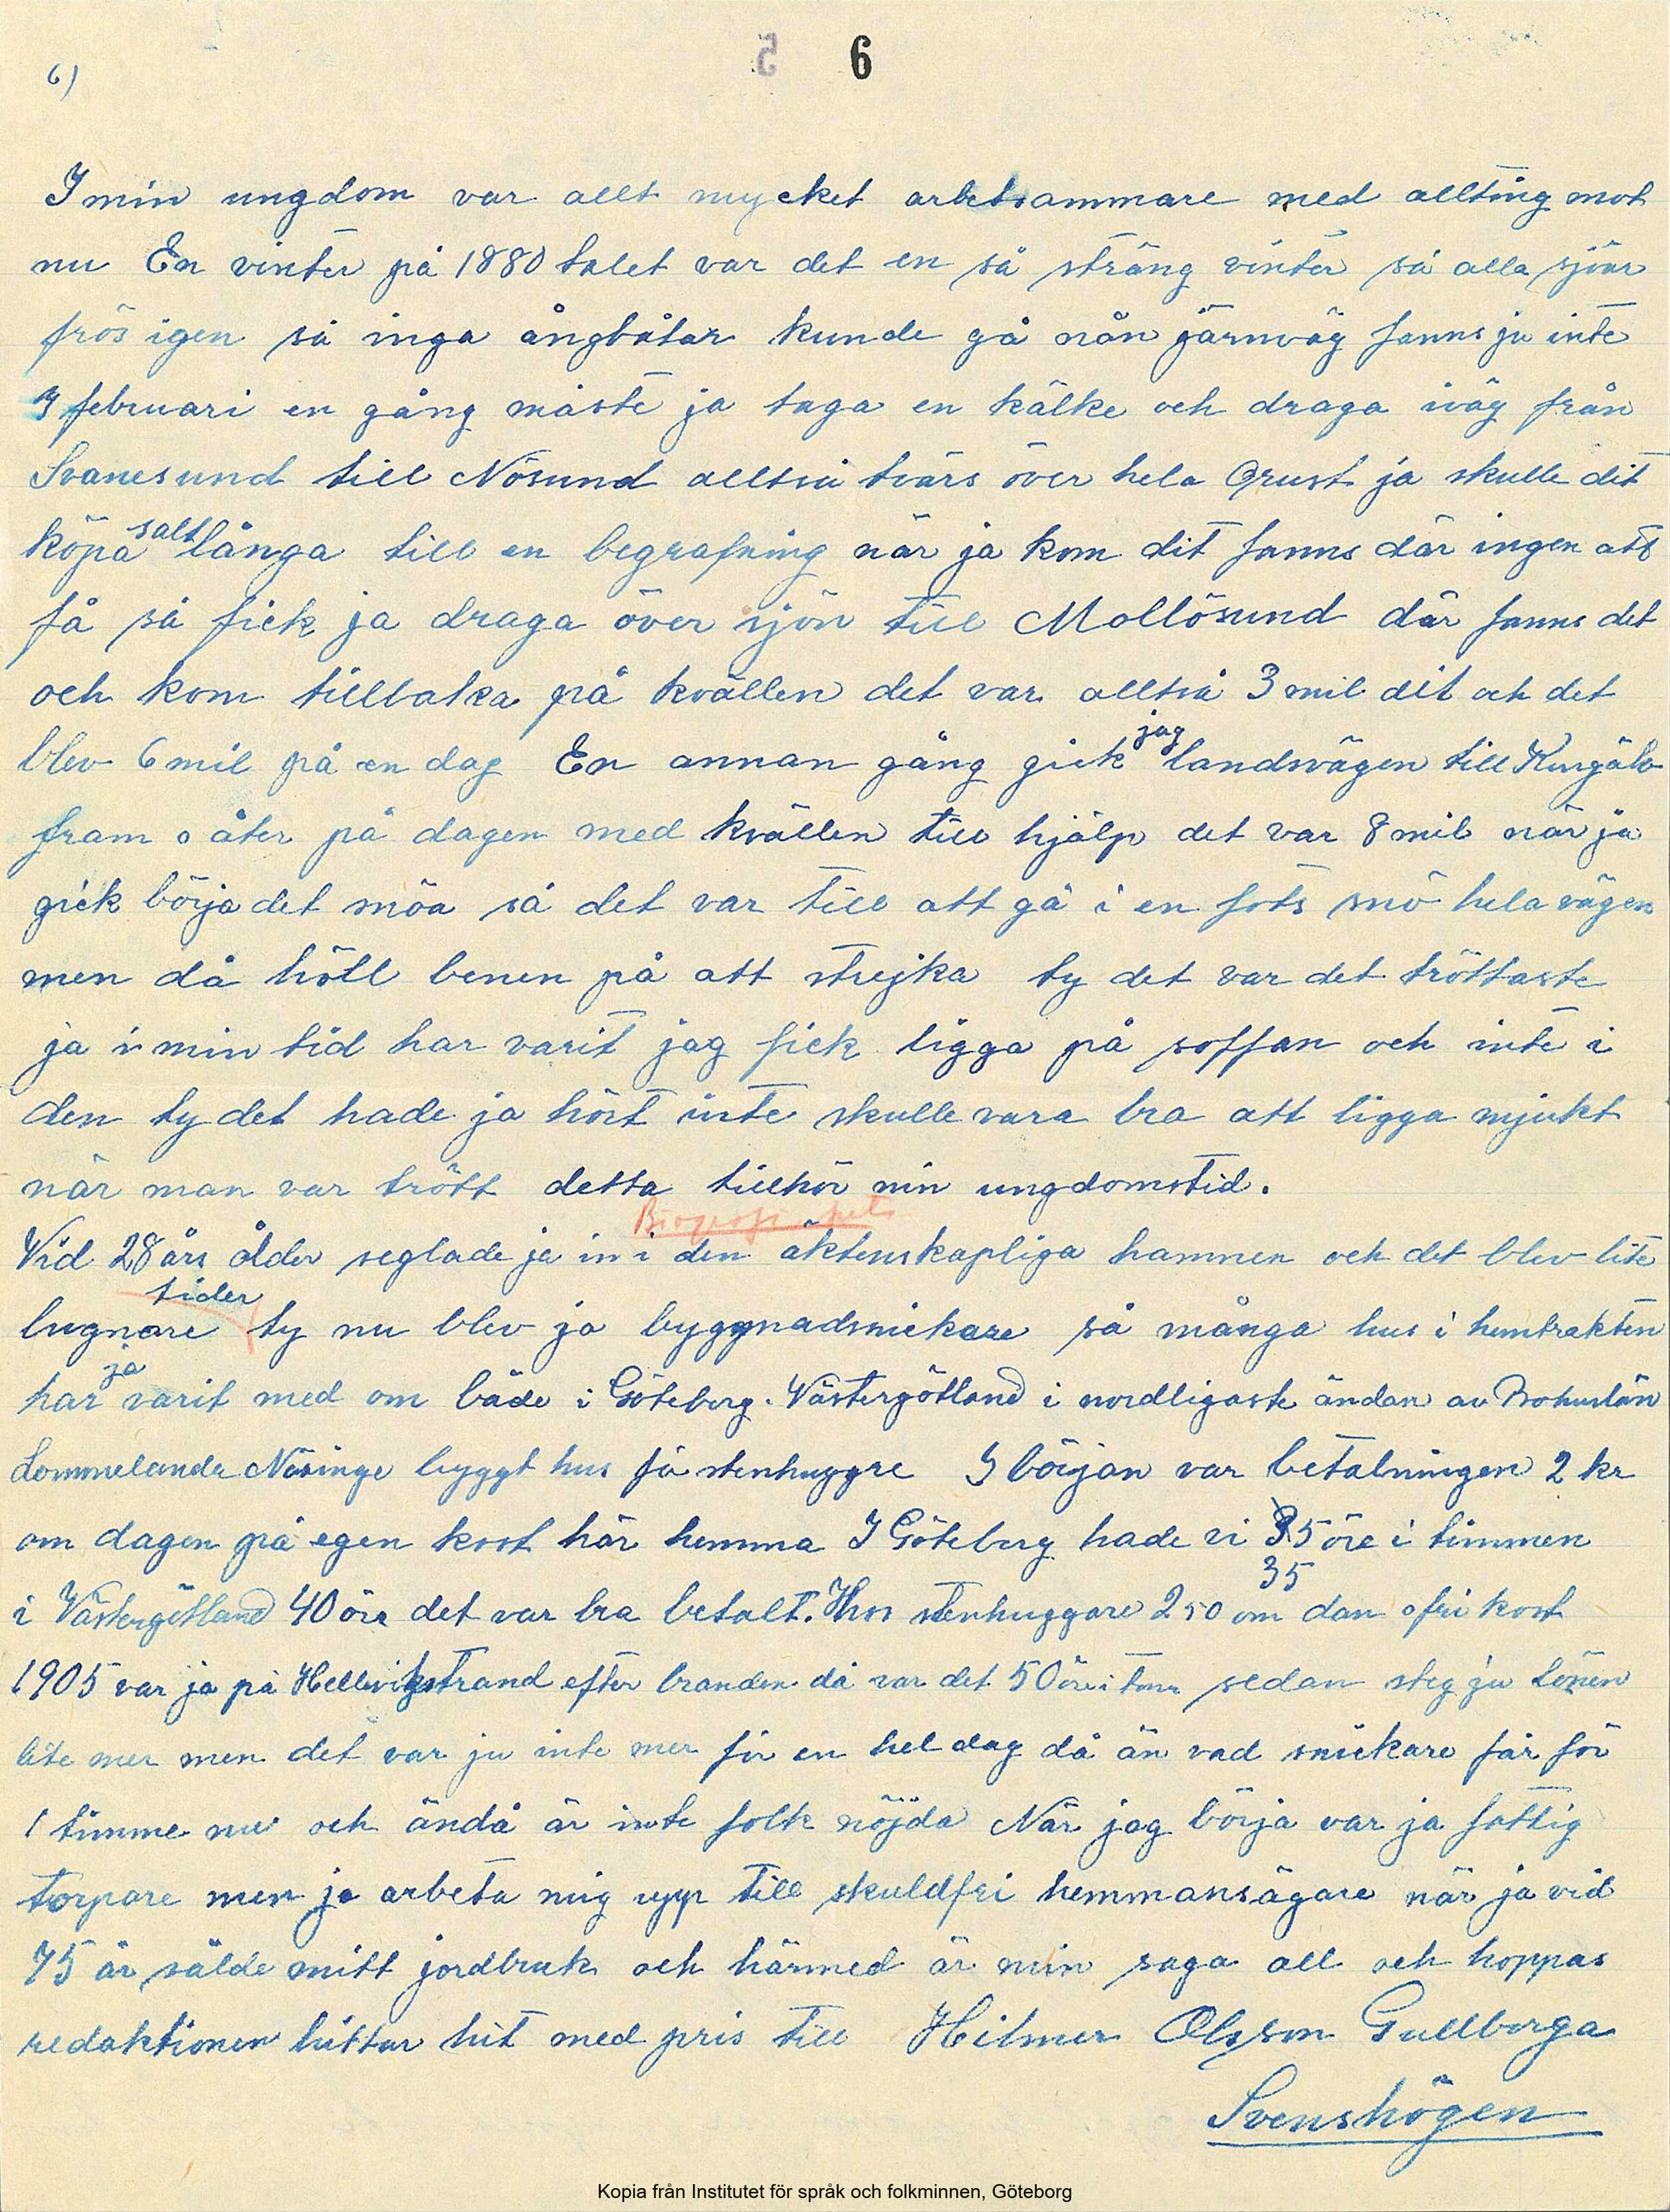 5 6
6)
I min ungdom var allt mycket arbetsammare med allting mot
nu En vinter på 1880 talet var det en så sträng vinter så alla sjöar
frös igen så inga ångbåtar kunde gå nån järnväg fanns ju inte
I februari en gång måste ja taga en kälke och draga iväg från
Svanesund till Nösund alltså tvärs över hela Orust ja skulle dit
köpa salt långa till en begrafning när ja kom dit fanns där ingen att
få så fick ja draga över sjön till Mollösund där fanns det
och kom tillbaka på kvällen det var alltså 3 mil dit och det
blev 6 mil på en dag En annan gång gick jag landsvägen till Kungälv
fram o åter på dagen med kvällen till hjälp det var 8 mil när ja
gick börja det snöa så det var till att gå i en fots snö hela vägen
men då höll benen på att strejka ty det var det tröttaste
ja i min tid har varit jag fick ligga på soffan och inte i
den ty det hade ja hört inte skulle vara bra att ligga mjukt
när man var trött detta tillhör min ungdomstid.
Vid 28 års ålder seglade ja in i den äktenskapliga hamnen och det blev lite
lugnare tider ty nu blev ja byggnadsnickare så många hus i hemtrakten
har ja varit med om både i Göteborg. Västergötland i nordligaste ändan av Bohuslän
Lommelanda Näsinge byggt hus få stenhuggre I början var betalningen 2 kr
om dagen på egen kost här hemma I Göteborg hade vi 35 öre i timmen
35
i Västergötland 40 öre det var bra betalt. Hos stenhuggare 2 50 om dan o fri kost
1905 var ja på Hellevikstrand efter branden då var det 50 öre i tim sedan steg ju lönen
lite mer men det var ju inte mer för en hel dag då än vad snickare får för
1 timme nu och ändå är inte folk nöjda När jag börja var ja fattig
torpare men ja arbeta mig upp till skuldfri hemmansägare när ja vid
75 år sålde mitt jordbruk och härmed är min saga all och hoppas
redaktionen hittar hit med pris till Hilmer Olsson Gullborga
Svenshögen
Kopia från Institutet för språk och folkminnen, Göteborg